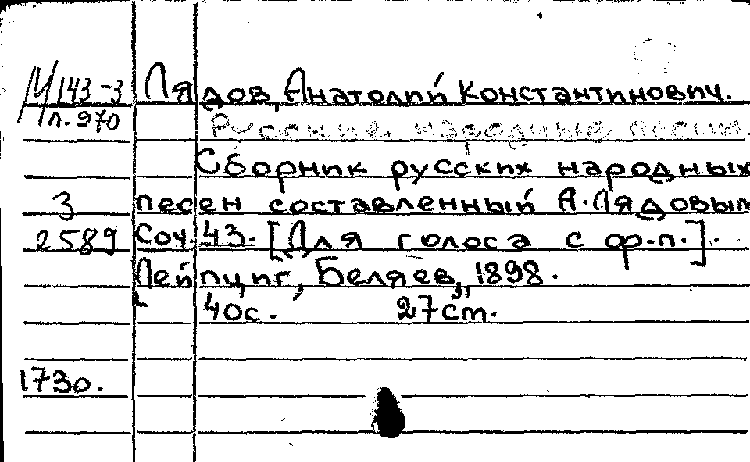 М 143-3 Лядов, Анатолий Константинович.
п. 970 Русские народные песни.
Сборник русских народных
3 песен составленный А. Лядовым
2589 Соч. 43. [Для голоса с ф.-п.].
Лейпциг, Беляев, 1898.
40с. 27cm.
1730.